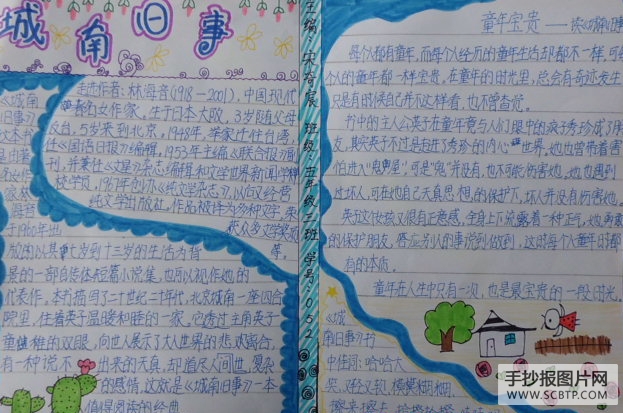 城南旧事
走近作者:林海音(1918-2001),中国现代
著名女作家。生于日本大阪,3岁随父母
返台,5岁来到北京,1948年,举家迁往台湾,
任《国语日报》编辑,1953年主编《联合报》副
刊,并兼任《文星》杂志编辑和文学世界新闻学
校学员,1967年创办《纯文学杂志》,以后又经营
纯文学出版社,作品被译为多种文字
《城南
旧事》
于1960年出
版的以其七岁到十三岁的生活为背
景的一部自传体短篇小说集,也可以视作她的
代表作。本书描写了二十世纪二十年代,北京城南一座四合
院里,住着英子温暖和睦的一家。它透过主角英子
童稚的双眼,向世人展示了大人世界的悲欢离合,
有一种说不出来的天真,却道尽人间世复杂
的感情,这就是《城南旧事》一本
值得阅读的经典
主编 班级:五年级三班 学号:0527
童年宝贵——读《城南旧事》
每个人都有童年,而每个人经历的童年生活却都不一样,可
个人的童年都一样宝贵,在童年的时光里,总会有奇迹发生
只是有时候自己并不这样看,也不曾察觉。
书中的主人公英子在童年竟与人们眼中的疯子秀珍成了朋
友,期实英子不过是走进了秀珍的内心世界,她也曾带着害
怕进入“鬼房里”,可是“鬼”并没有,也不可能伤害她,她也遇到
过坏人,可在她自己天真思想,的保护下,坏人并没有伤害她。
英子这女孩又很有正义感,全身上下流露着一种正气,她勇敢
的保护朋友,答应别人的事说到做到,这时每个人童年时都
有的本质。
童年在人生中只有一次,也是最宝贵的一段时光。
《城
南旧事》书
中佳词:哈哈大
笑、又松又软、模模糊糊、
手抄报图片网
WWW.SCBTP.COM